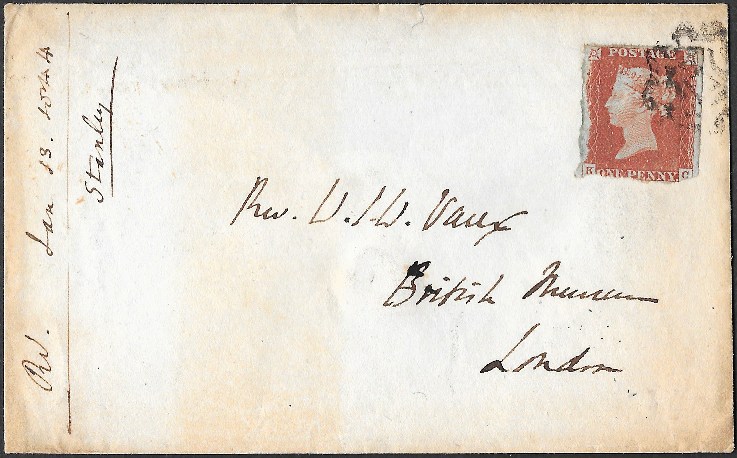 POSTAGE
ONE PENNY
K G
Rev. W. S. W. Vaux
British Museum
London
Stanley
Rd. Jan 13. 1844